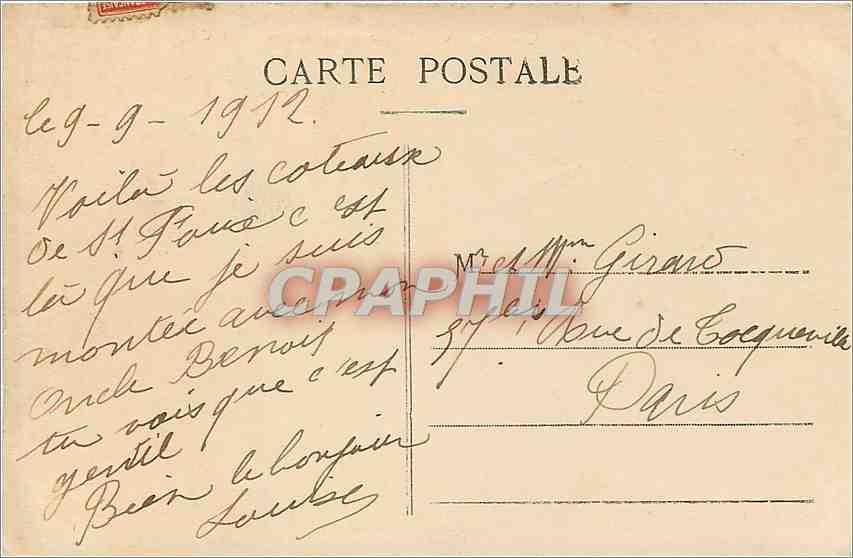 CARTE POSTALE
le 9-9-1912.
Voilà les coteaux
de St Foix c'est
là que je suis
montée avec mon
Oncle Benoit
tu vois que c'est
gentil
Bien le bonjour
Louise
Mr et Mm Girard
37 Rue de Tocqueville
Paris
CPARAMA